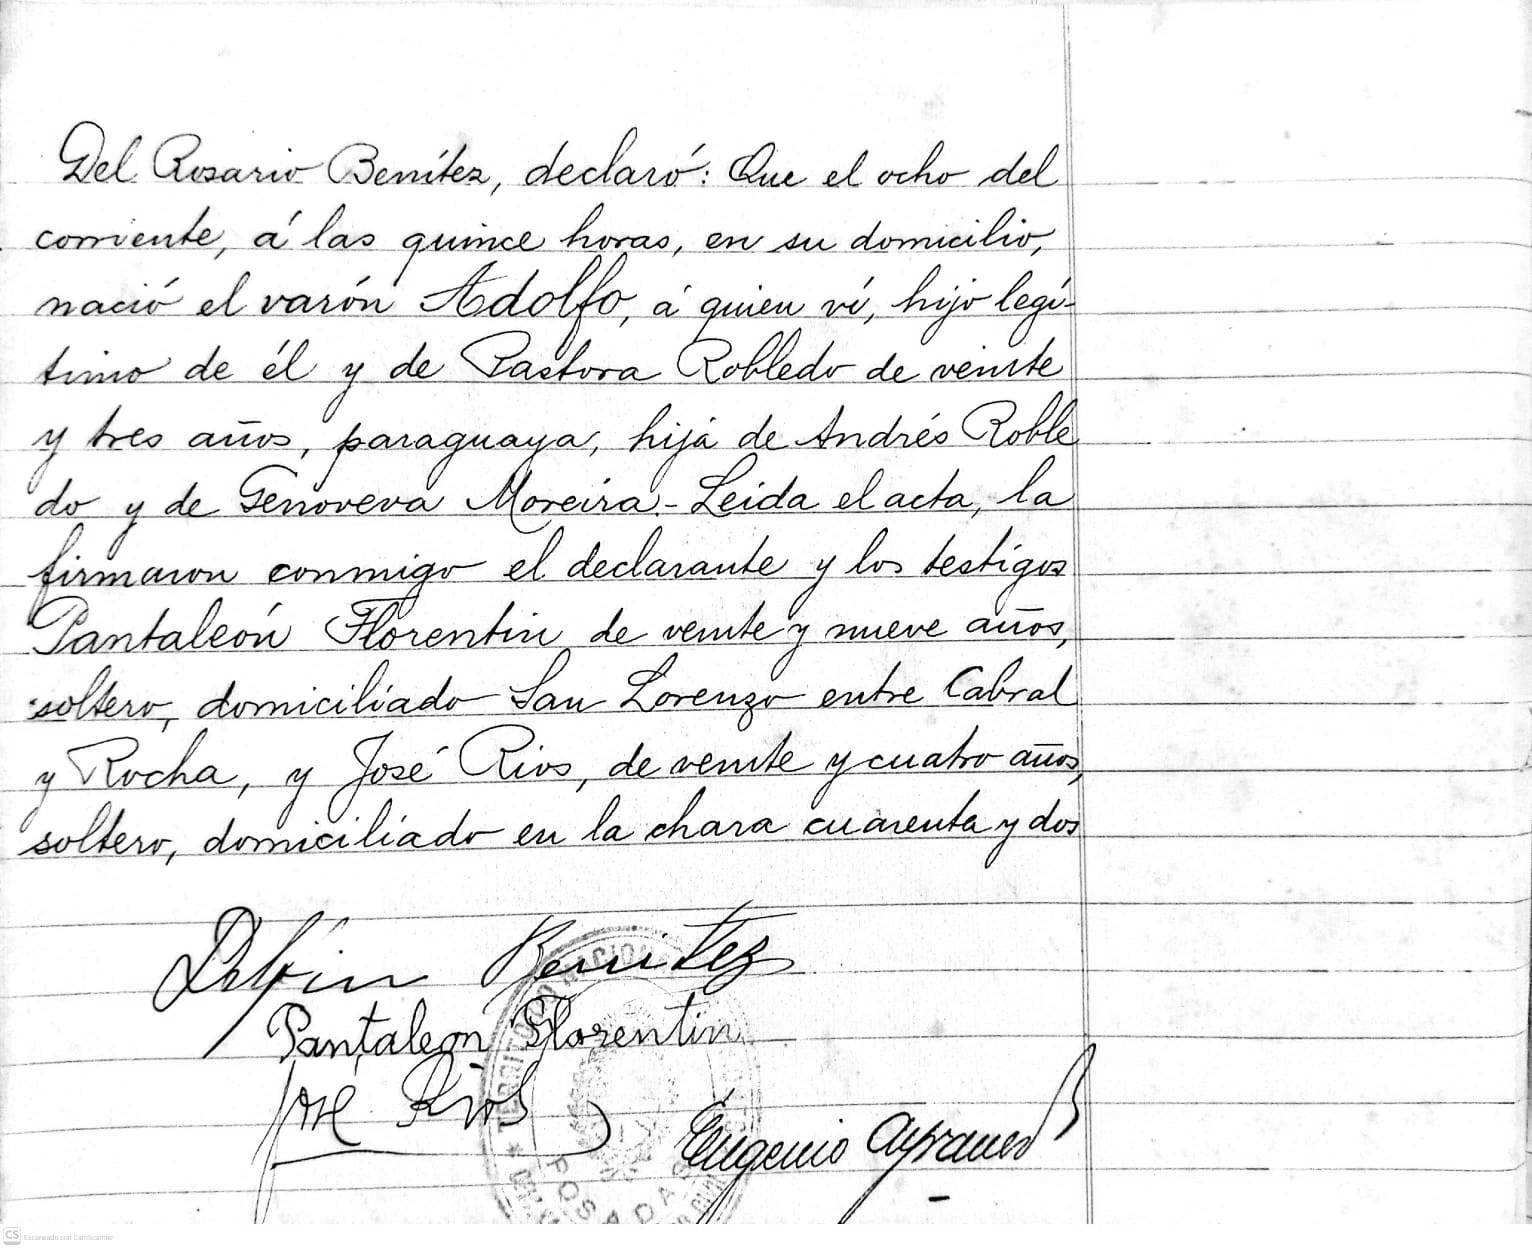 Del Rosario Benítez, declaró: Que el ocho del
corriente, á las quince horas, en su domicilio,
nació el varón Adolfo, á quien ví, hijo legí-
timo de él y de Pastora Robledo de veinte
y tres años, paraguaya, hija de Andrés Roble
do y de Genoveva Moreira.- Leida el acta, la
firmaron conmigo el declarante y los testigos
Pantaleón Florentin de veinte y nueve años,
soltero, domiciliado San Lorenzo entre Cabral
y Rocha, y José Rios, de veinte y cuatro años,
soltero, domiciliado en la chara cuarenta y dos
Delfin Benitez
Pantaleon Florentin
José Rios
Eugenio
TERRITORIO NACIONAL
POSADAS
CS Escaneado con CamScanner